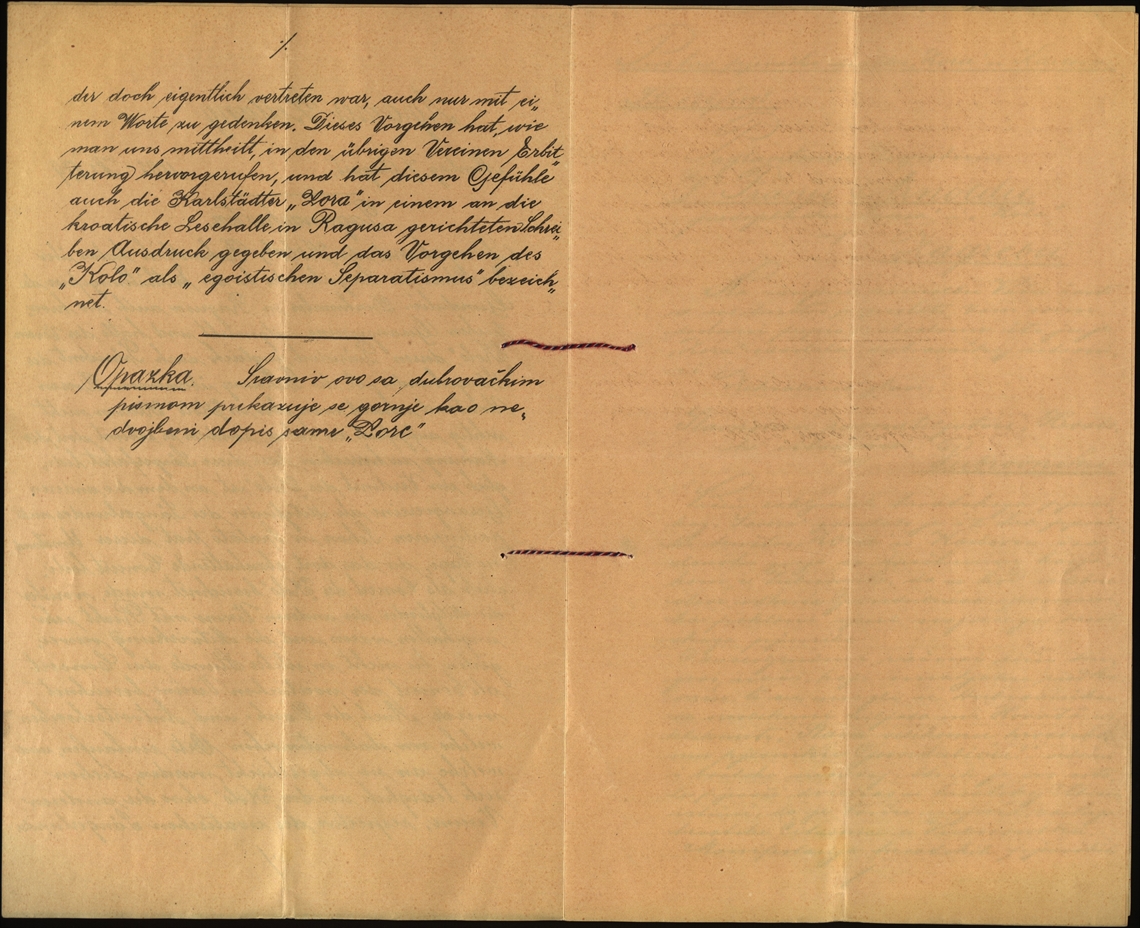 ·/.
der doch eigentlich vertreten war, auch nur mit ei„
nem Worte zu gedenken. Dieses Vorgehen hat, wie
man uns mittheilt, in den übrigen Vereinen Erbit„
terung hervorgerufen, und hat diesem Gefühle
auch die Karlstädter „Zora" in einem an die
kroatische Lesehalle in Ragusa gerichteten Schrei„
ben Ausdruck gegeben und das Vorgehen des
„Kolo" als „egoistischen Separatismus" bezeich„
net.
Opazka. Sravniv ovo sa dubrovačkim
pismom prikazuje se gornje kao ne„
dvojbeni dopis same „Zore"